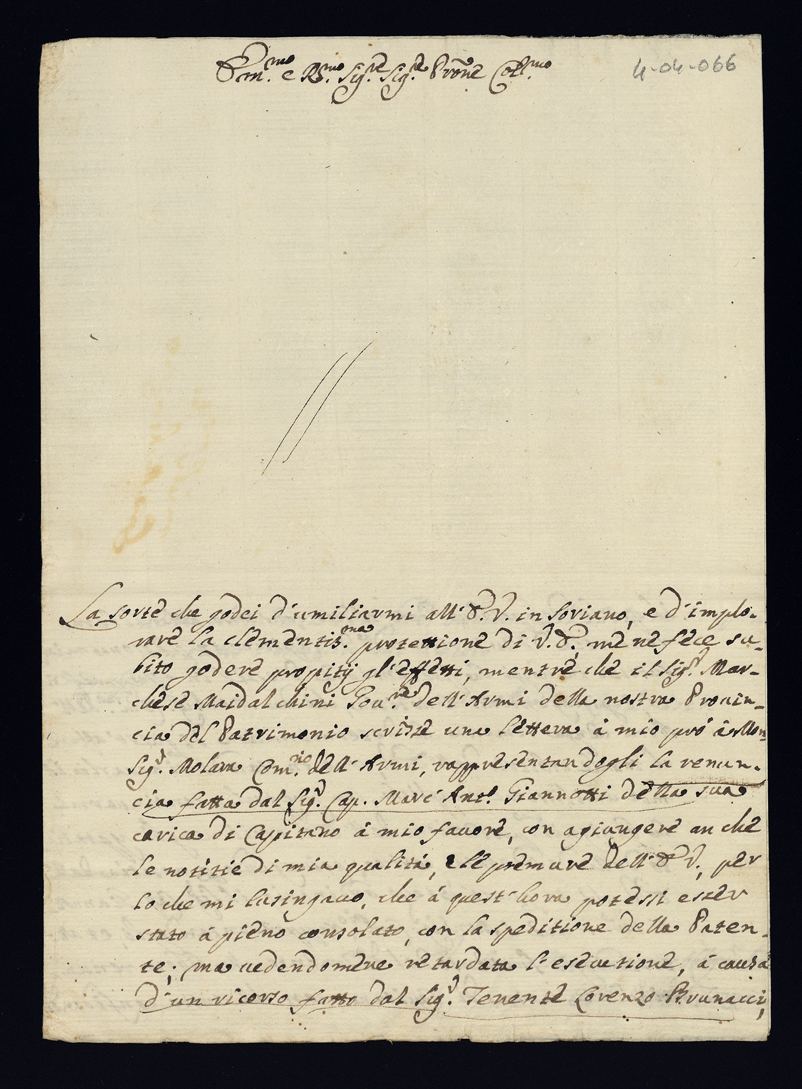 Em.mo e R.mo Sig.re Sig.re Pron̄e Coll.mo
4-04-066
La sorte che godei d'umiliarmi all'E.V. in Soriano, e d'implo-
rare la clementis.ma protettione di V.E. me ne fece su-
bito godere propitij gl'effetti, mentre che il Sig.r Mar-
chese Maidalchini Gou.re dell'Armi della nostra Prouin-
cia del Patrimonio scrisse una lettera à mio prò à Mon
Sig.r Molara Com.rio dell'Armi, rappresentandogli la renun-
cia fatta dal Sig.r Cap. Marc'Ant.o Giannotti della sua
carica di Capitano à mio fauore, con agiungere anche
le notitie di mia qualità, e le premure dell'E.V., per
lo che mi lusingauo, che à quest'hora potessi esser
stato à pieno consolato, con la speditione della Paten-
te; ma uedendomene retardata l'esecutione, à causa
d'un ricorso fatto dal Sig.r Tenente Lorenzo Brunacci,